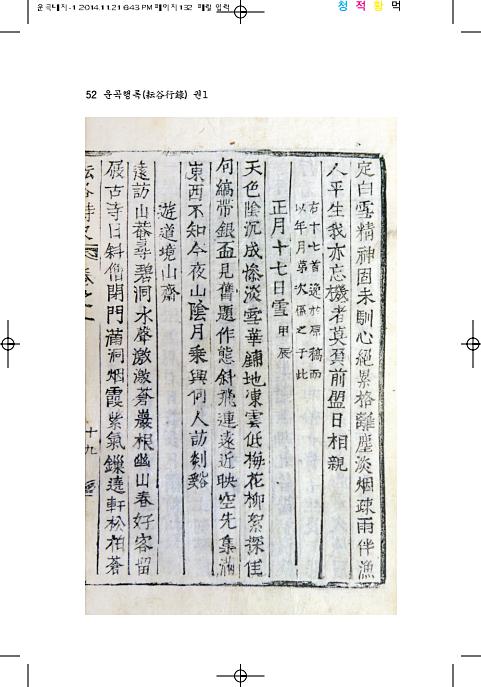 운곡내지-1 2014.11.21 6:43 PM 페이지132 매킨 입력
청 적 황 먹
52 운곡행록(耘谷行錄) 권1
定白雪精神固未馴心絕累格離塵淡烟疎雨伴漁
人平生我亦忘機者莫負前盟日相親
右十七首逸於原稿而
以年月第次係之于此
正月十七日雪 甲辰
天色陰沉成慘淡雪華鋪地凍雲低梅花柳絮探佳
何縞帶銀盃見舊題作態斜飛連遠近映空先集滿
東西不知今夜山陰月乘興何人訪剡谿
遊道境山齋
遠訪山菴尋碧洞水聲激激蒼巖根幽山春好客留
屐古寺日斜僧閉門滿洞烟霞紫氣鏁遶軒松柏蒼
耘谷詩史 卷之一 十九